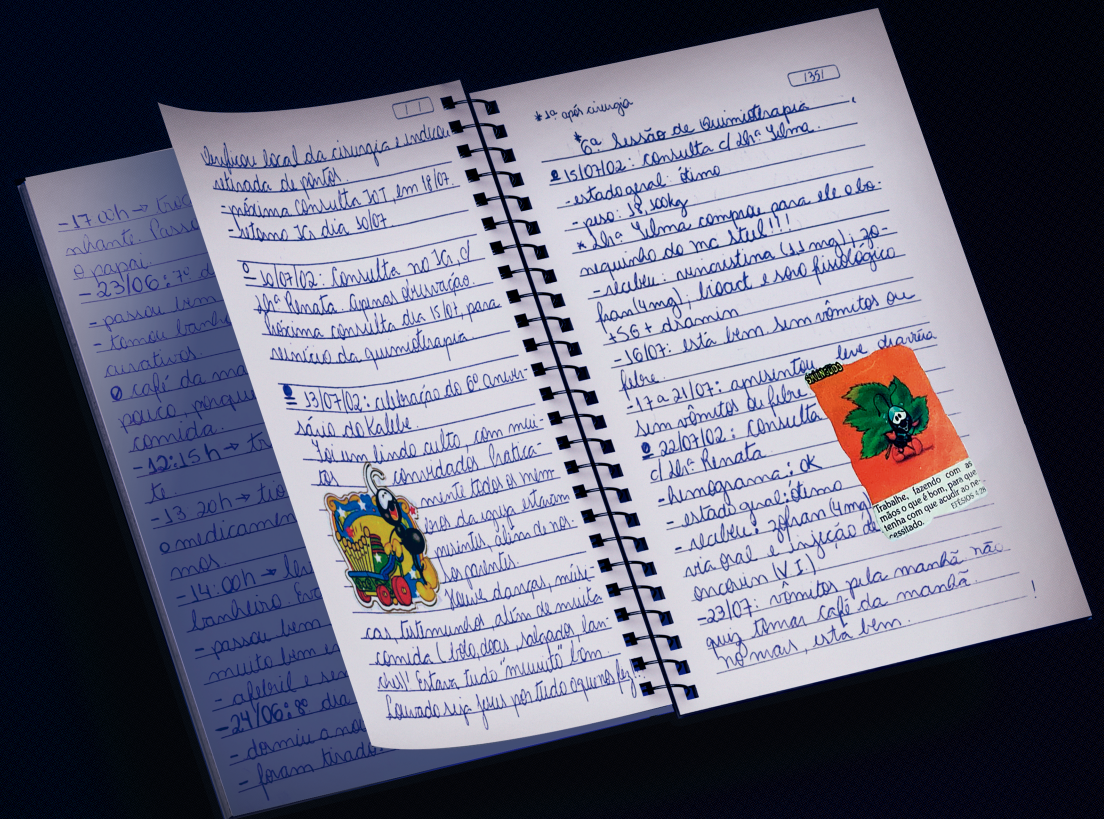 -17:00h → troc
nhante. Passo
o papai.
-23/06: 7º d
- passou bem
- tomou banho
curativos.
café da ma
pouco, porque
comida.
-12:15h → tr
te.
-13:20h → tro
medicamen
mos
-14:00h → le
banheiro. Eva
- passou bem
muito bem
- afebril e sem
-24/06: 8º dia
- dormiu a no
- foram tirado
verificou local da cirurgia e indicou
retirada de pontos.
-próxima consulta IOT, em 18/07.
-retorno Icr dia 30/07.
10/07/02: Consulta no Icr, c/
Drª Renata. Apenas observação.
Próxima consulta dia 15/07, para
reinício da quimioterapia
13/07/02: celebração do 6º aniver-
sário do Kalebe.
Foi um lindo culto, com mui-
tos convidados. Pratica-
mente todos os mem
bros da igreja estavam
presentes, além de nos-
sos parentes.
Houve danças, músi-
cas, testemunhos, além de muita
comida (bolo, doces, salgados, lan-
ches)! Estava tudo "muuuito" bom.
Louvado seja Jesus por tudo o que nos fez!!
1351
*1ª após cirurgia
*6ª Sessão de Quimioterapia
15/07/02: consulta c/ Drª Yelma.
-estado geral: ótimo
- peso: 18,300kg
* Drª Yelma comprou para ele o bo-
nequinho do mc Steel!!!
-recebeu: vincristina (1,1 mg); zo-
fran (4mg); bioact e soro fisiológico
+SG + dramin
-16/07: está bem sem vômitos ou
febre.
-17 a 21/07: apresentou leve diarréia
sem vômitos ou febre
22/07/02: consulta
c/ Drª Renata.
-hemograma: OK
- estado geral: ótimo
- recebeu: zofran (4mg)
via oral e injeção de
oncovin (V I.)
-23/07: vômitos pela manhã não
quiz tomar café da manhã.
no mais, está bem.
Trabalhe, fazendo com as
mãos o que é bom, para que
tenha com que acudir ao ne-
cessitado.
EFÉSIOS 4:28